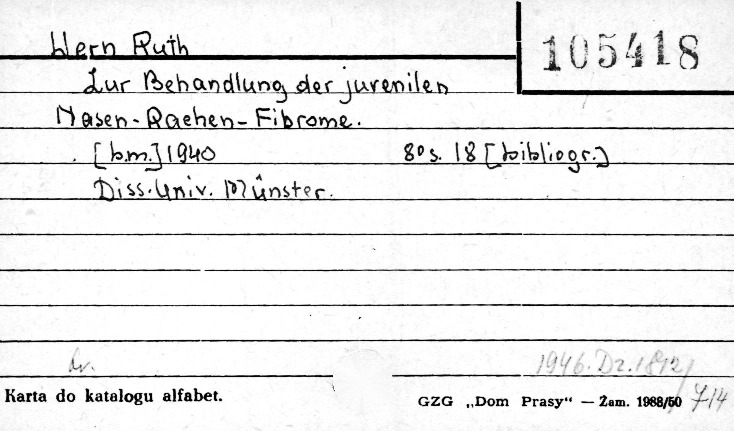 Wern Ruth
105418
Zur Behandlung der juvenilen
Nasen-Rachen-Fibrome.
[b.m.] 1940 80 s. 18 [bibliogr.]
Diss. Univ. Münster.
1946. Dz. 1812/
714
Karta do katalogu alfabet.
GZG „Dom Prasy" — Żam. 1988/50